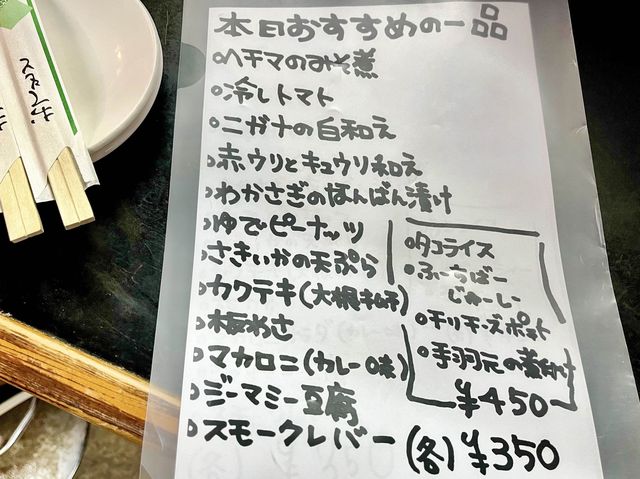 本日おすすめの一品
ヘチマのみそ煮
冷しトマト
ニガナの白和え
赤ウリとキュウリ和え
わかさぎのなんばん漬け
ゆでピーナッツ
さきいかの天ぷら
カクテキ(大根キムチ)
板わさ
マカロニ(カレー味)
ジーマミー豆腐
スモークレバー
(各)¥350
タコライス
ふーちばー
じゅーしー
チリチーズポテト
手羽元の煮付け
¥450